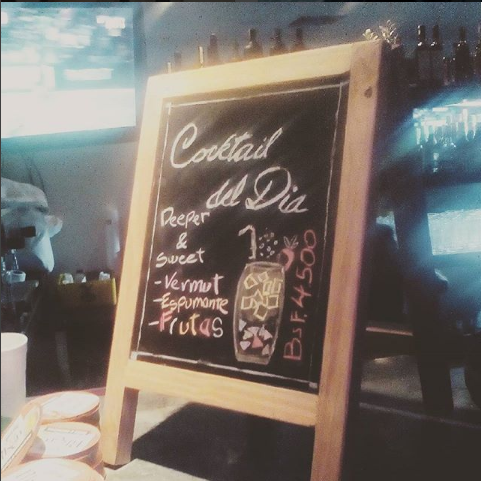 Cocktail
del Dia
Deeper
&
Sweet
-Vermut
-Espumante
-Frutas
BsF. 4500